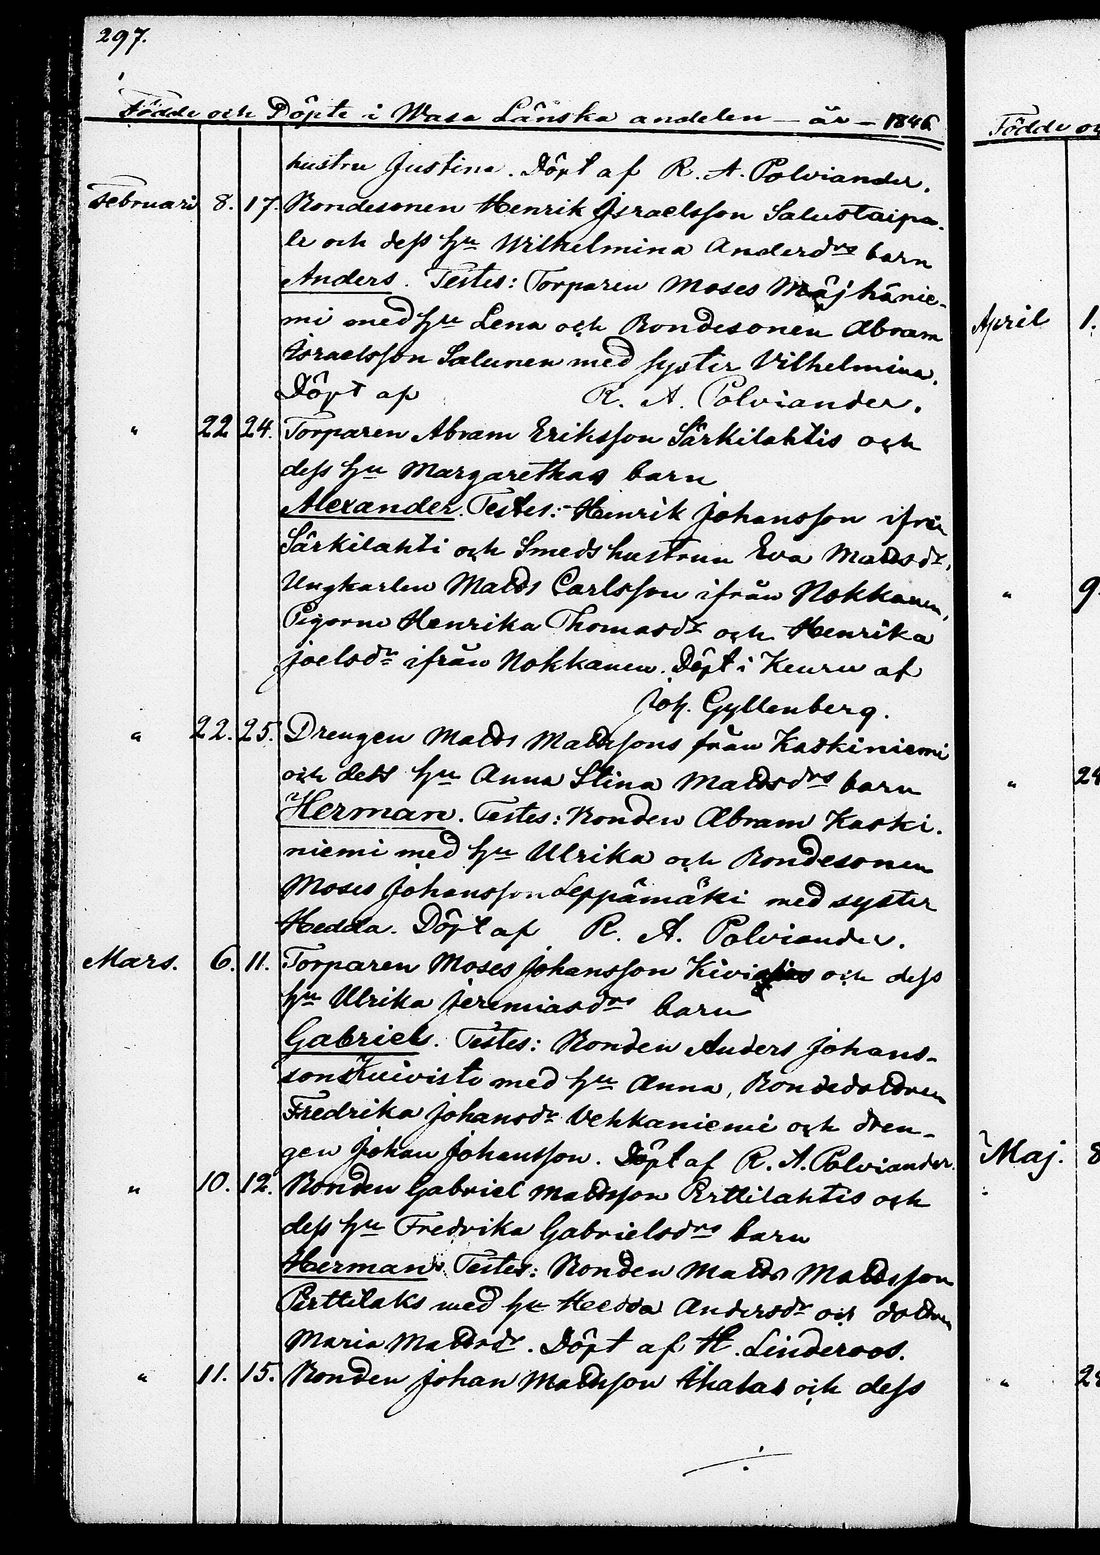 297.
Födde och Döpte i Wasa Länska andelen – år – 1846
hustru Justina. Döpt af R. A. Polviander.
Februari 8. 17. Bondesonen Henrik Israelsson Salustaipa-
le och dess hu Wilhelmina Andersdrs barn
Anders. Testes: Torparen Moses Majhänie-
mi med hu Lena och Bondesonen Abram
Israelsson Salunen med syster Vilhelmina.
Döpt af R. A. Polviander.
" 22 24. Torparen Abram Eriksson Särkilahtis och
dess hu Margarethas barn
Alexander. Testes: Henrik Johansson ifrån
Särkilahti och Smedshustrun Eva Matsdr,
Ungkarlen Matts Carlsson ifrån Nokkanen,
Pigorne Henrika Thomasdr och Henrika
Joelsdr ifrån Nokkanen. Döpt i Keuru af
Joh. Gyllenberg.
" 22. 25. Drengen Matts Mattssons från Kaskiniemi
och dess hu Anna Stina Mattsdrs barn
Herman. Testes: Bonden Abram Kaski-
niemi med hu Ulrika och Bondesonen
Moses Johansson Leppämäki med syster
Hedda. Döpt af R. A. Polviander.
Mars. 6. 11. Torparen Moses Johansson och dess
hu Ulrika Jeremiasdrs barn
Gabriel. Testes: Bonden Anders Johans-
son Kuivisto med hu Anna, Bondedottren
Fredrika Johansdr Vehkaniemi och dren-
gen Johan Johansson. Döpt af R. A. Polviander.
" 10. 12. Bonden Gabriel Mattsson Perttilahtis och
dess hu Fredrika Gabrielsdrs barn
Herman. Testes: Bonden Matts Mattsson
Perttilaks med hu Hedda Andersdr och dottren
Maria Mattsdr. Döpt af H. Linderoos.
" 11. 15. Bonden Johan Mattsson Ahalas och dess
Födde oc
April 1.
" 9.
" 28
Maj. 8
" 28